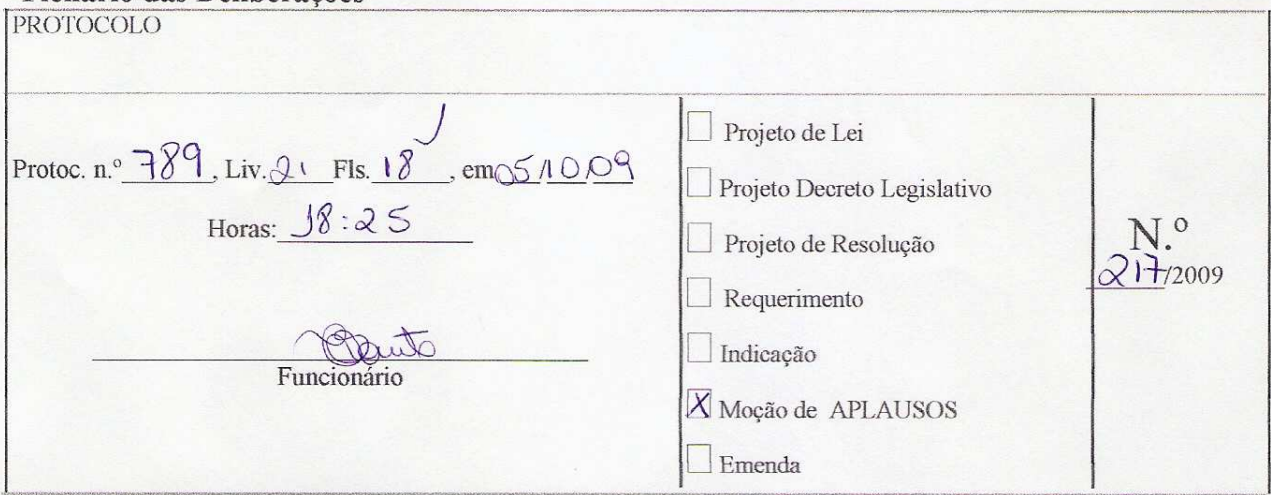 Plenário das Deliberações
PROTOCOLO
Protoc. n.º 789, Liv. 21 Fls. 18, em 05/10/09
Horas: 18:25
Funcionário
Projeto de Lei
Projeto Decreto Legislativo
Projeto de Resolução
Requerimento
Indicação
X Moção de APLAUSOS
Emenda
N.º
217/2009